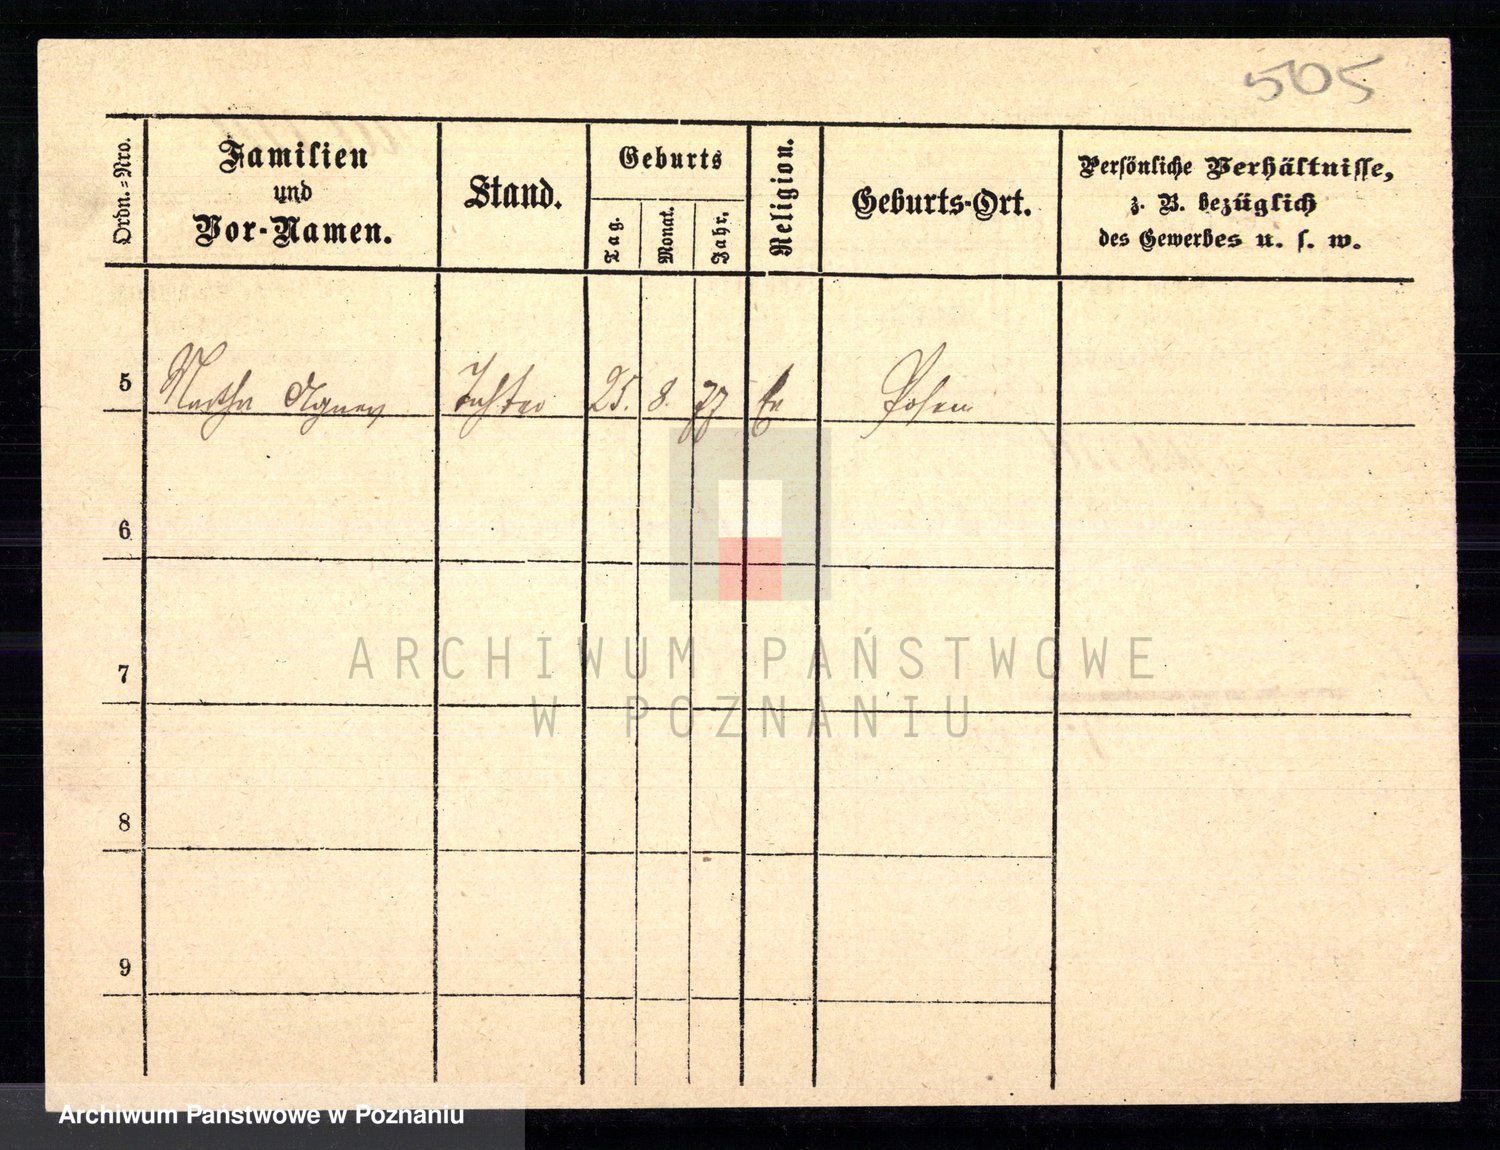 505
Ordn.=Nro.
Familien
und
Vor-Namen.
Stand.
Geburts
Tag.
Monat.
Jahr.
Religion.
Geburts-Ort.
Persönliche Verhältnisse,
z. B. bezüglich
des Gewerbes u. s. w.
5 Martha Agnes Tochter 25. 8. 77 Posen
6
7
8
9
ARCHIWUM PAŃSTWOWE
W POZNANIU
Archiwum Państwowe w Poznaniu